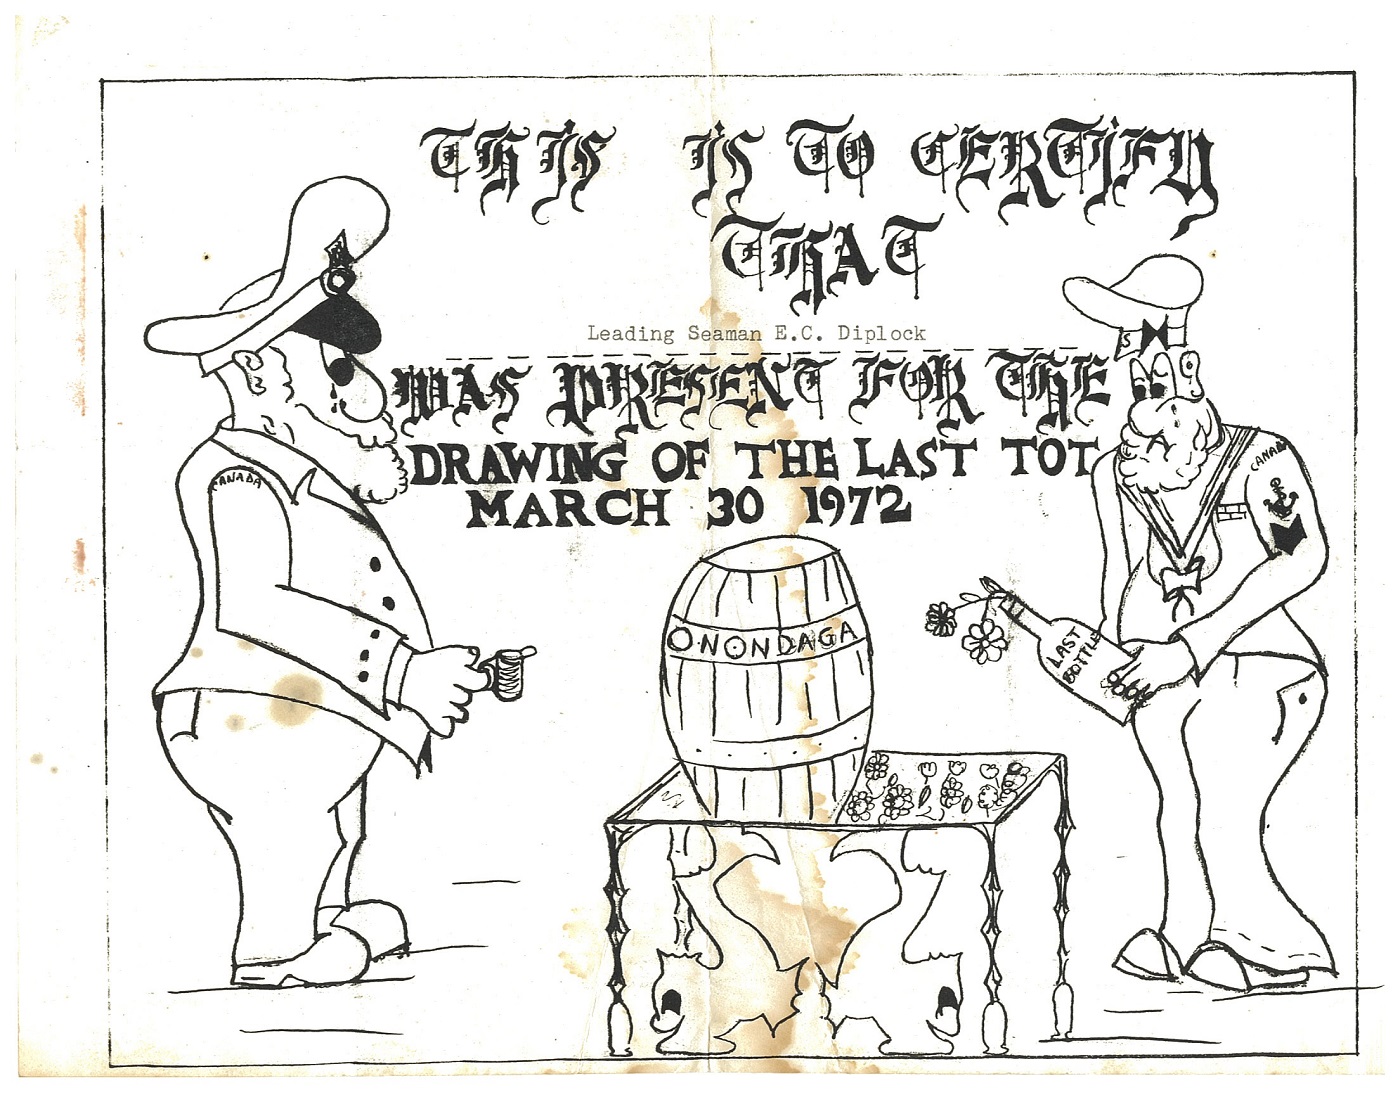 THIS IS TO CERTIFY
THAT
Leading Seaman E.C. Diplock
WAS PRESENT FOR THE
DRAWING OF THE LAST TOT
MARCH 30 1972
CANADA
CANADA
S
ONONDAGA
LAST
BOTTLE